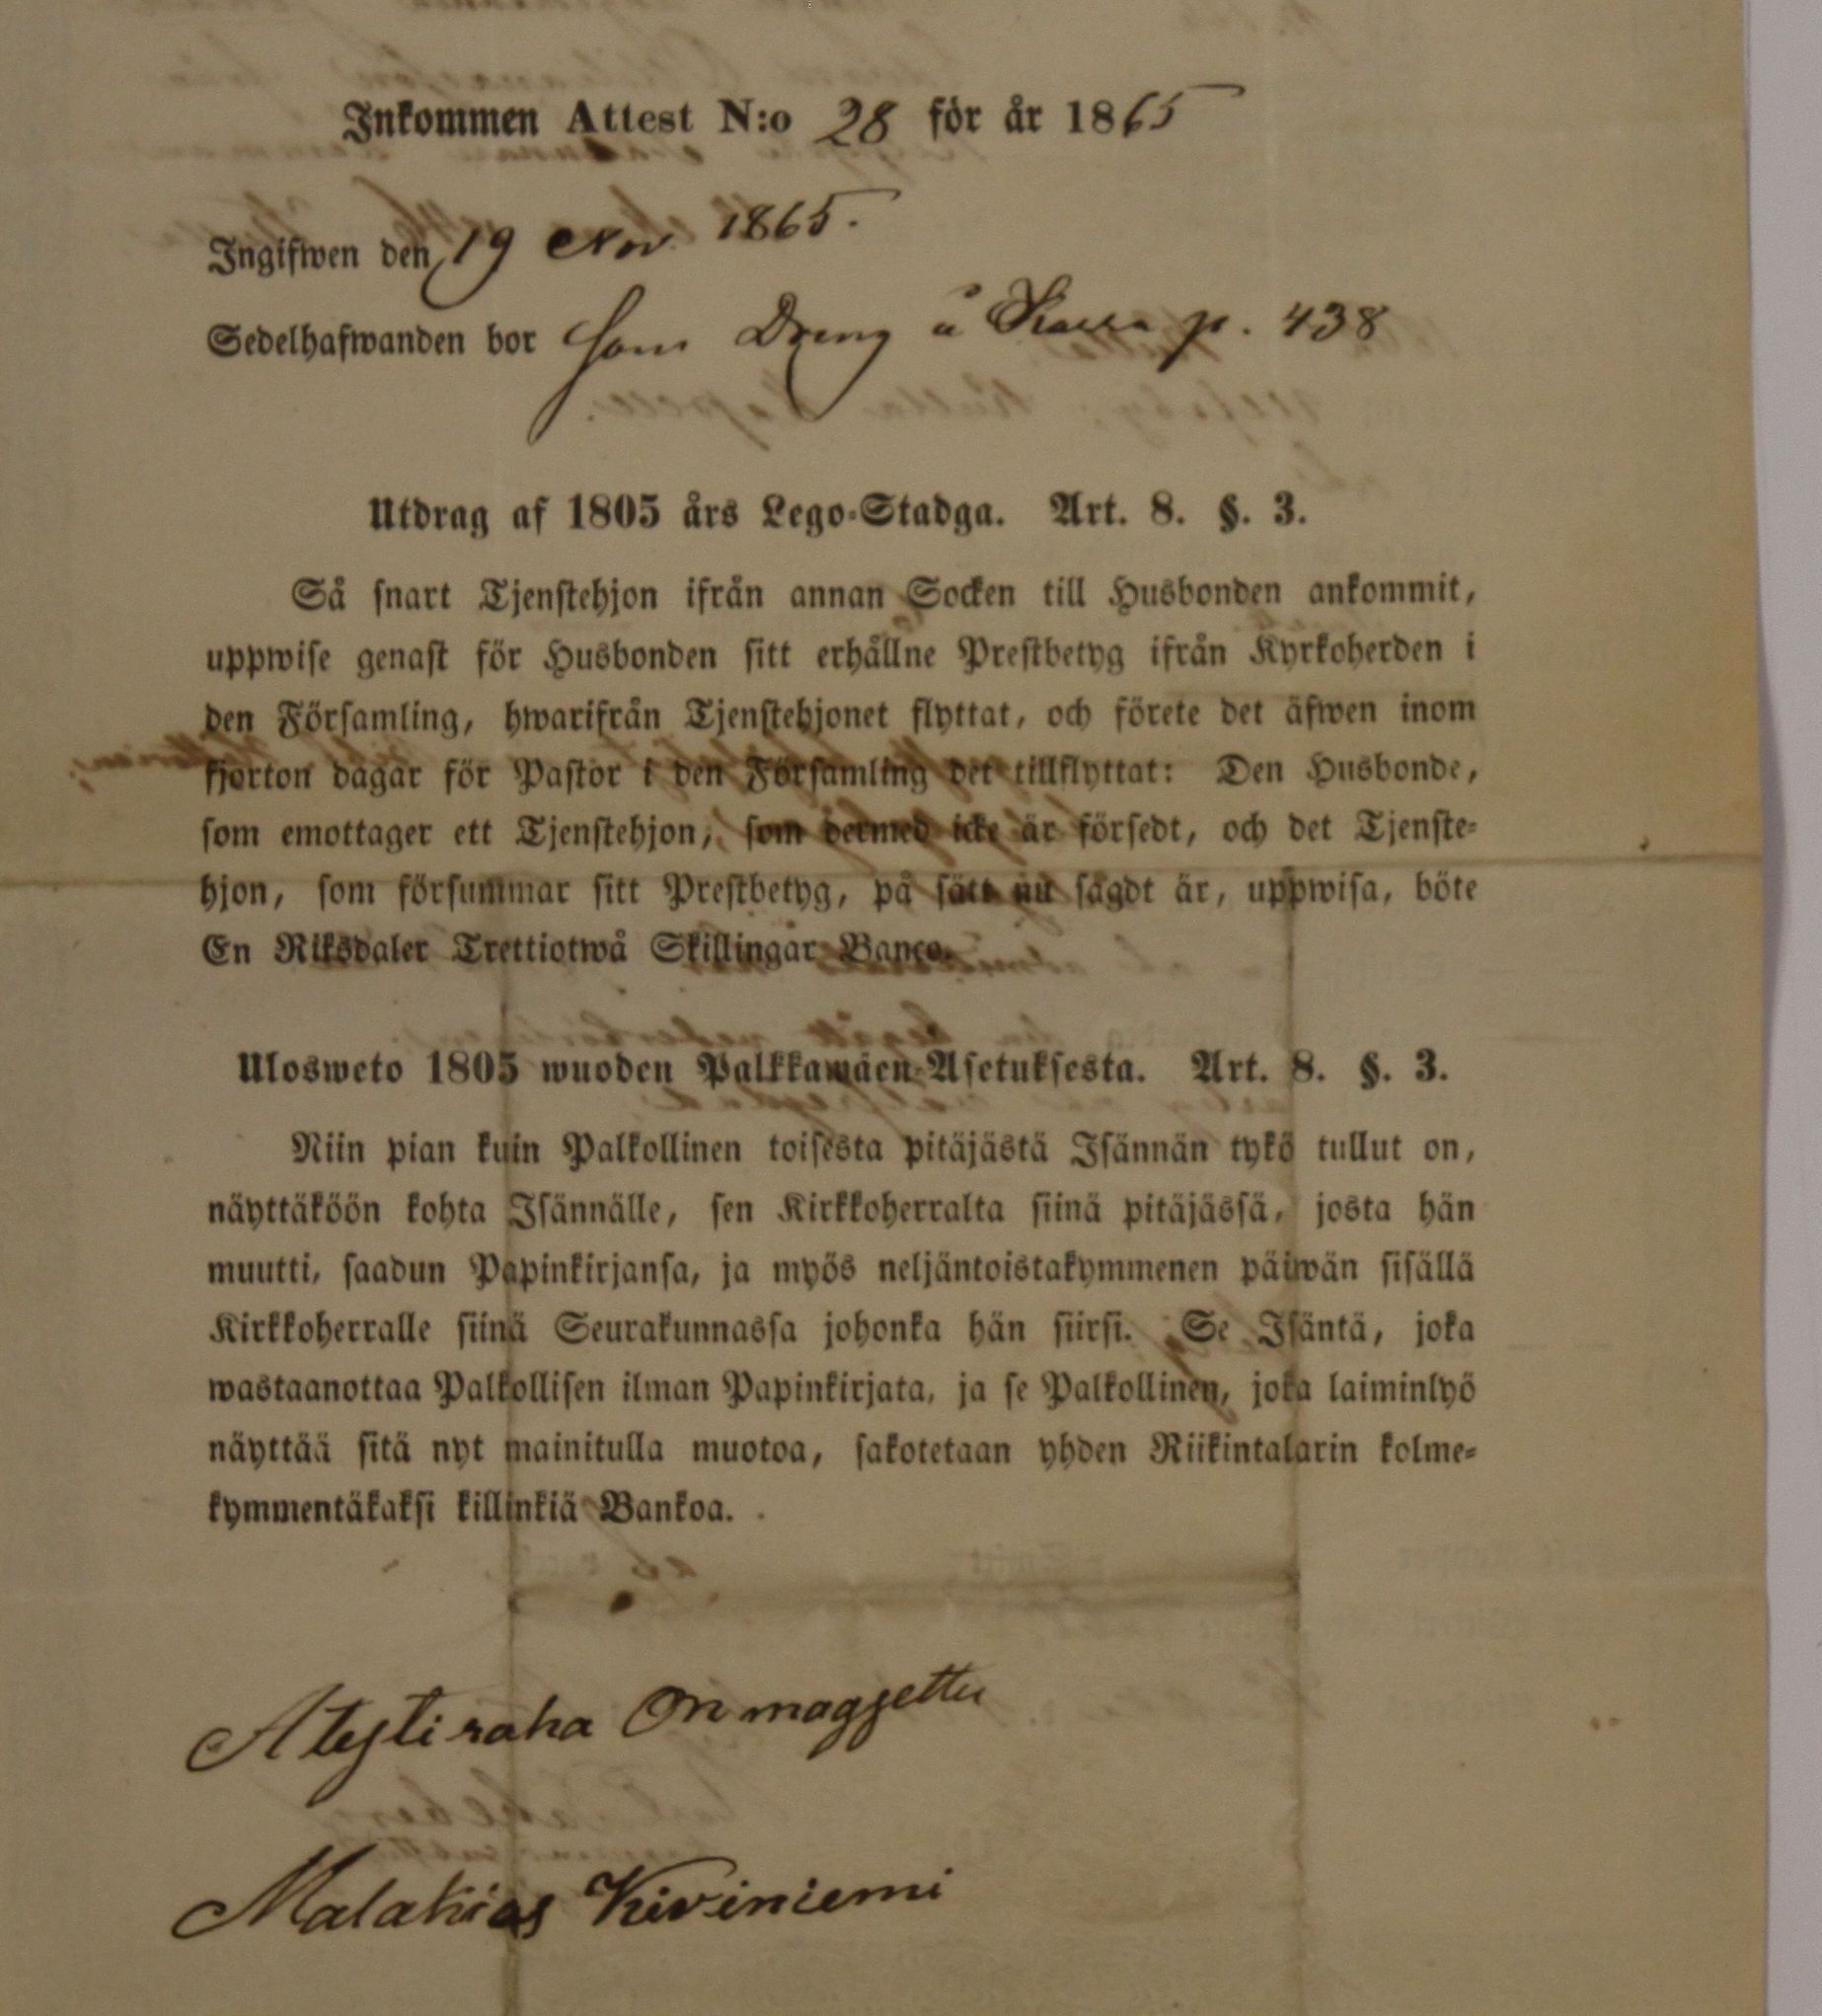 Inkommen Attest N:o 28 för år 1865
Ingifwen den 19 Nov. 1865.
Sedelhafwanden bor som Dreng å p. 438
Utdrag af 1805 års Lego-Stadga. Art. 8. §. 3.
Så snart Tjenstehjon ifrån annan Socken till Husbonden ankommit,
uppwise genast för Husbonden sitt erhållne Prestbetyg ifrån Kyrkoherden i
den Församling, hwarifrån Tjenstehjonet flyttat, och förete det äfwen inom
fjorton dagar för Pastor i den Församling det tillflyttat: Den Husbonde,
som emottager ett Tjenstehjon, som dermed icke är försedt, och det Tjenste-
hjon, som försummar sitt Prestbetyg, på sätt nu sagdt är, uppwisa, böte
En Riksdaler Trettiotwå Skillingar Banco.
Ulosweto 1805 wuoden Palkkawäen-Asetuksesta. Art. 8. §. 3.
Niin pian kuin Palkollinen toisesta pitäjästä Isännän tykö tullut on,
näyttäköön kohta Isännälle, sen Kirkkoherralta siinä pitäjässä, josta hän
muutti, saadun Papinkirjansa, ja myös neljäntoistakymmenen päiwän sisällä
Kirkkoherralle siinä Seurakunnassa johonka hän siirsi. Se Isäntä, joka
wastaanottaa Palkollisen ilman Papinkirjata, ja se Palkollinen, joka laiminlyö
näyttää sitä nyt mainitulla muotoa, sakotetaan yhden Riikintalarin kolme-
kymmentäkaksi killinkiä Bankoa.
Atestiraha On maggsettu
Malakias Kiviniemi